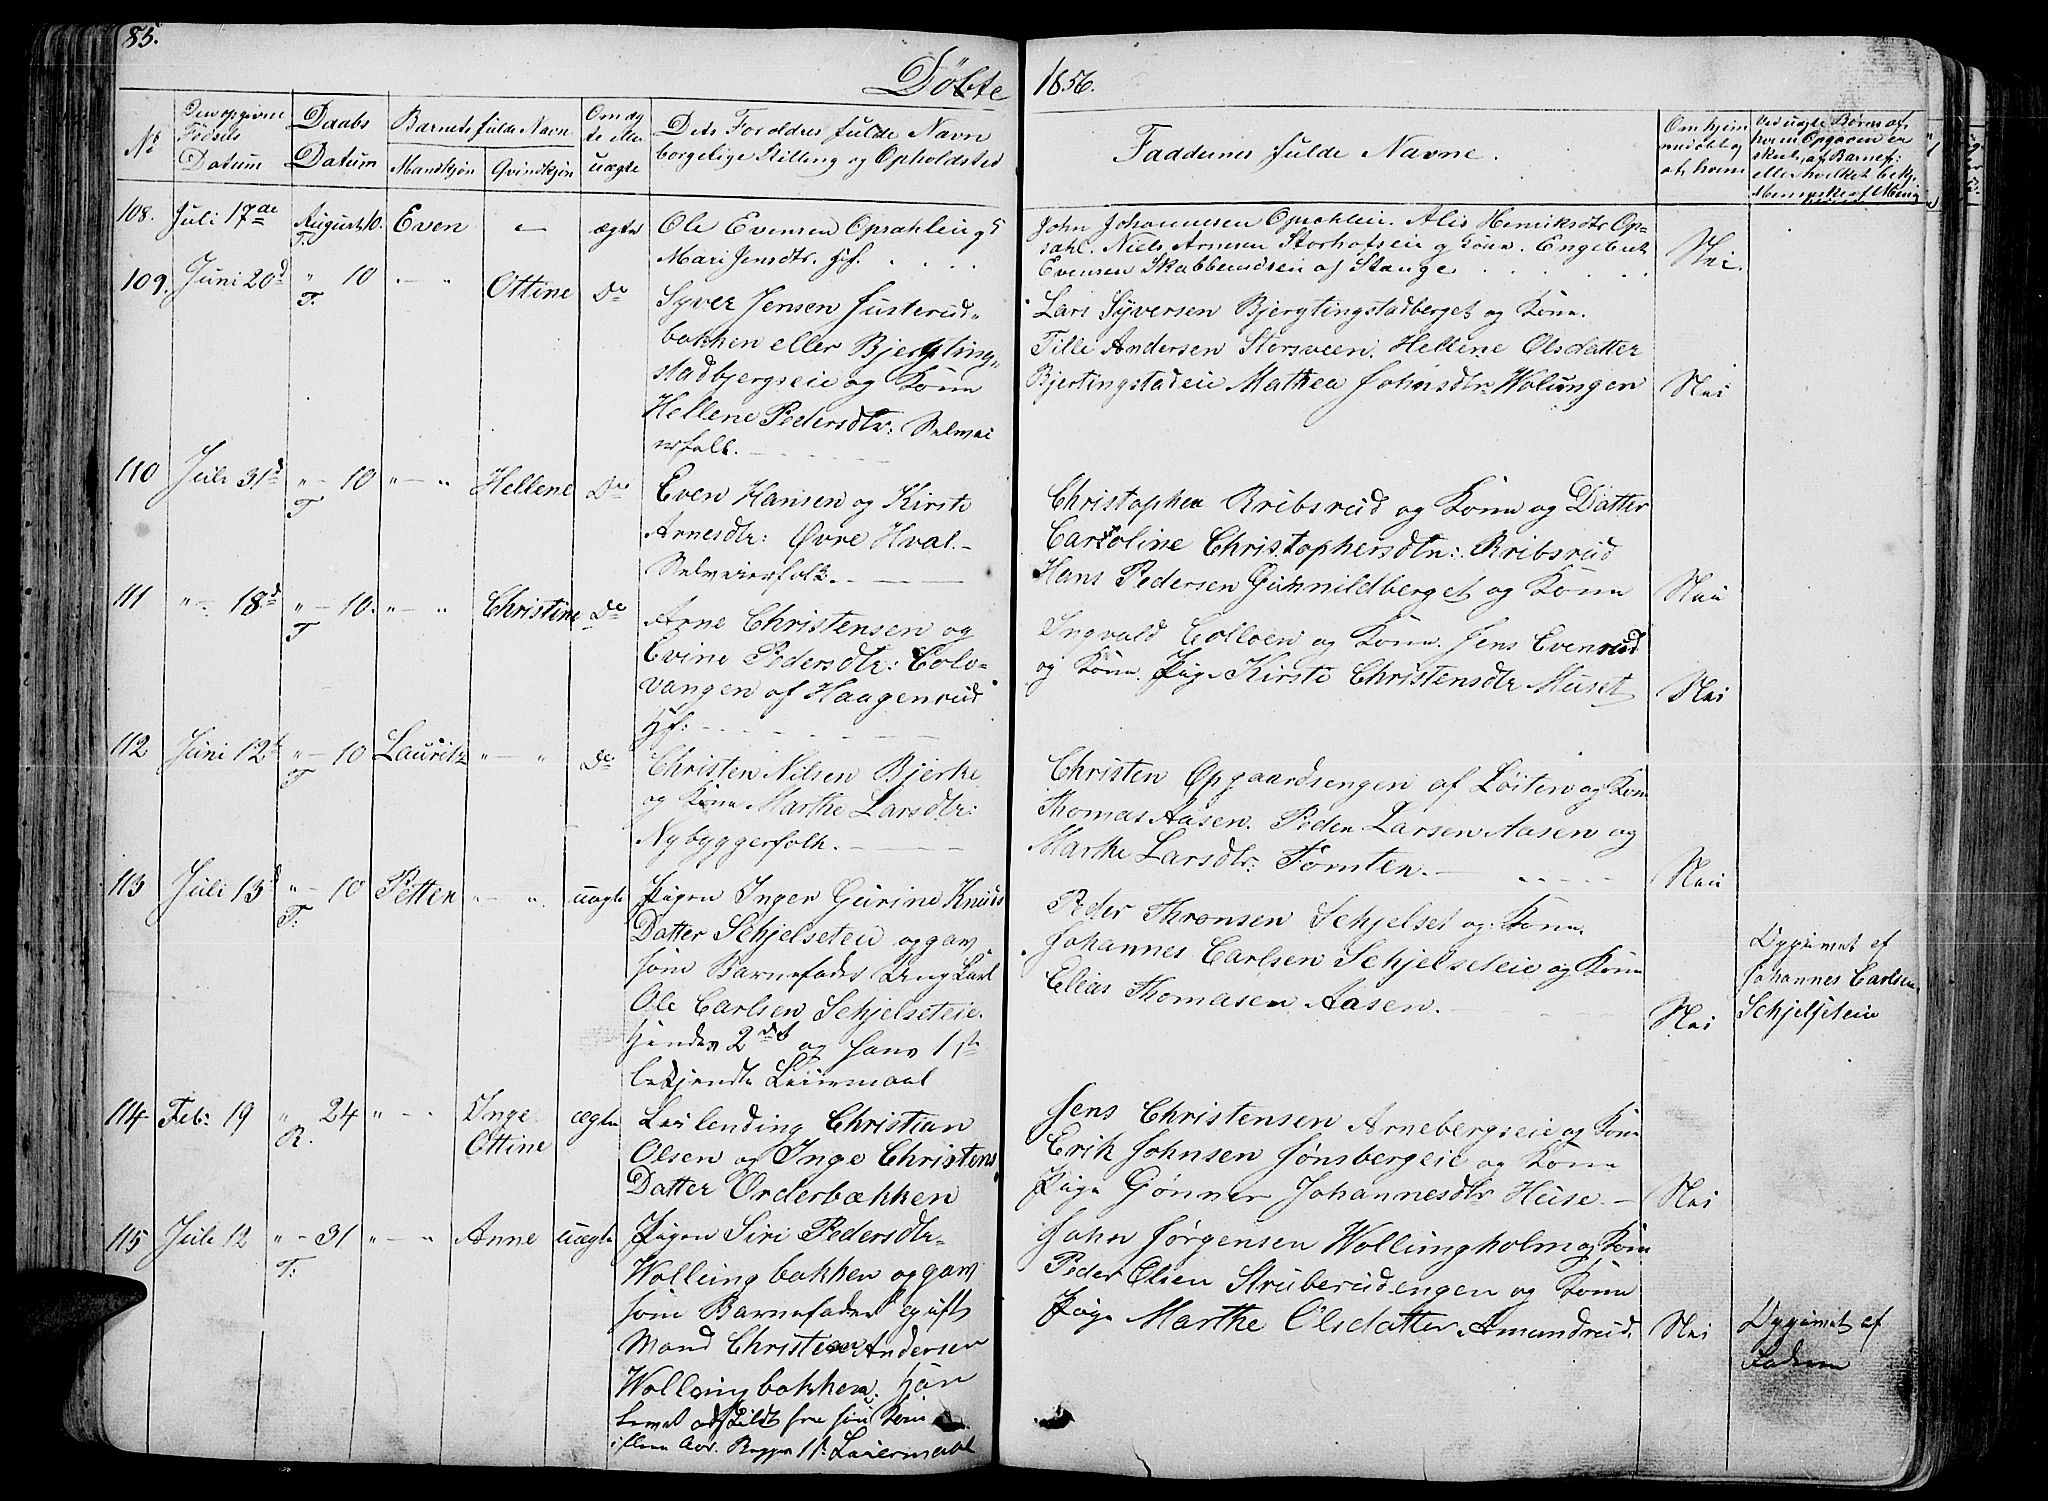 85.
Døbte
1856.
No
Den opgivne Fødsels Datum
Daabs Datum
Barnets fulde Navn
Mandkjøn
Qvindkjøn
Om ægte eller uægte
Dets Forældres fulde Navn
borgelige Stilling og Opholdsted
Faddernes fulde Navne.
108. Juli 17de August 10. T. Even " ægte
Ole Evensen Opsahleie
Mari Jensdtr.
John Johannesen Opsahleie. Alis Henriksdtr Op-
sahl. Niels Arnesen Storhofseie og Kone. Engebret
Evensen Skabberudseie af Stange
Nei.
109. Juni 20d " 10 T. " Ottine Do
Syver Jensen Justerud-
bakken eller Bjergting-
stadbjergseie og Kone
Hellene Pedersdtr: Selvei
erfolk.
Lars Syversen Bjergtingstadberget og Kone.
Tille Andersen Storsveen. Hellene Olsdatter
Bjertingstadeie Mathea Johnsdtr: Wolungen
Nei
110 Juli 31d " 10 T " Hellene Do
Even Hansen og Kirsti
Arnesdtr: Øvre Hval.
Selveierfolk.
Christopher Kribsrud og Kone og Datter
Caroline Christophersdtr: Kribsrud
Hans Pedersen Gunnildberget og Kone
Nei
111 " 18d " 10. T " Christine Do
Arne Christensen og
Evine Pedersdtr: Colo-
vangen af Haagenrud
Hf:
Ingvald Colloen og Kone. Jens Evenrud
og Kone. Pige Kirsti Christensdtr Muset
Nei
112 Juni 12t " 10 T Lauritz " Do
Christen Nilsen Bjerke
og Kone Marthe Larsdtr:
Nybyggerfolk.
Christen Opgaardsengen af Løiten og Kone
Thomas Aasen. Peder Larsen Aasen og
Marthe Larsdtr: Tomten.
Nei
113 Juli 13d " 10 T: Petter " uægte
Pigen Inger Gurine Knuds
Datter Schjelseteie opgav
som Barnefader Ung Karl
Ole Carlsen Schjelseteie.
Hendes 2det og hans 1ste
bekjendte Leiermaal
Peder Thronsen Schjelset og Kone.
Johannes Carlsen Schjelseteie og Kone
Elias Thomasen Aasen.
Nei
Opgivet af
Johannes Carlsen
Schjelseteie
114 Feb: 19 " 24 R. " Inge Ottine ægte
Leilending Christian
Olsen og Inge Christens
Datter Orderbækken
Jens Christensen Arnebergseie og Kone
Erik Johnsen Jønsbergeie og Kone
Pige Gønner Johannesdtr Huse
Nei
115 Juli 12 " 31 T: " Anne uægte
Pigen Siri Pedersdtr
Wollungbakken opgav
som Barnefader gift
Mand Christian Andersen
Wollungbakken. Han
levet adskildt fra sin Kone
Begges 1ste Leiermaal
John Jørgensen Wollungholm og Kone
Peder Olsen Struberudengen og Kone
Pige Marthe Olsdatter Amundrud.
Nei
Opgivet af
Faderen